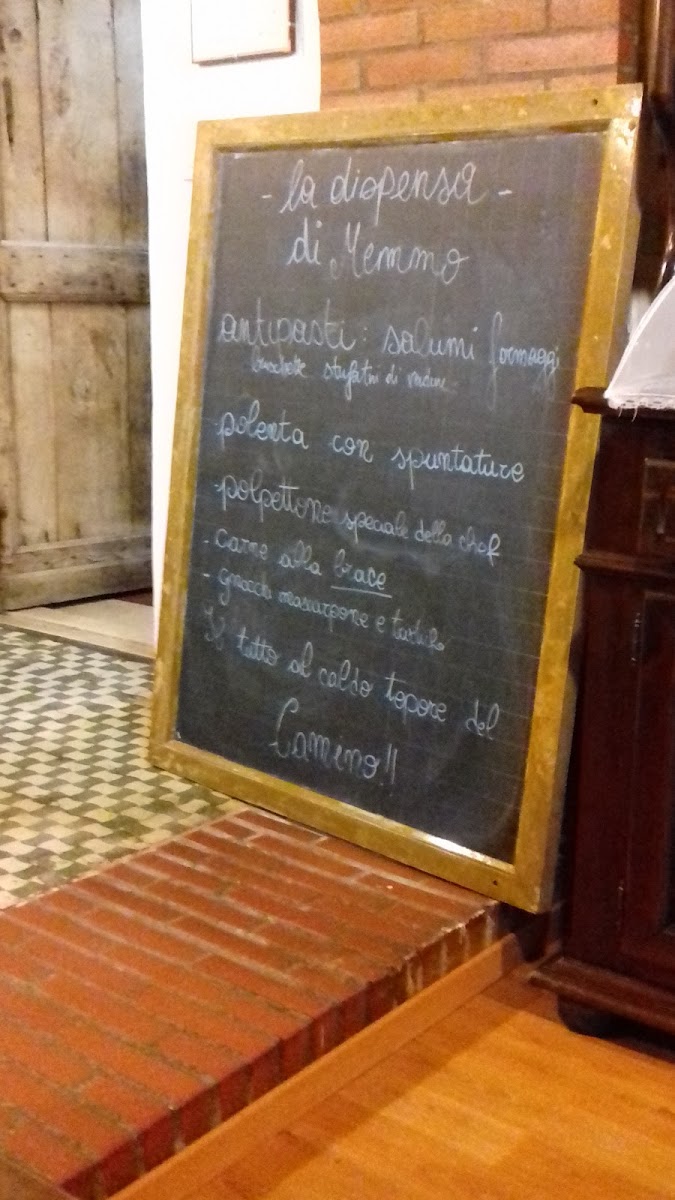 - la dispensa -
di Memmo
antipasti: salumi formaggi
bruschette stufatini di verdure
polenta con spuntature
- polpettone speciale dello chef
- carne alla brace
- gnocchi mascarpone e tartufo
Il tutto al caldo tepore del
Camino!!